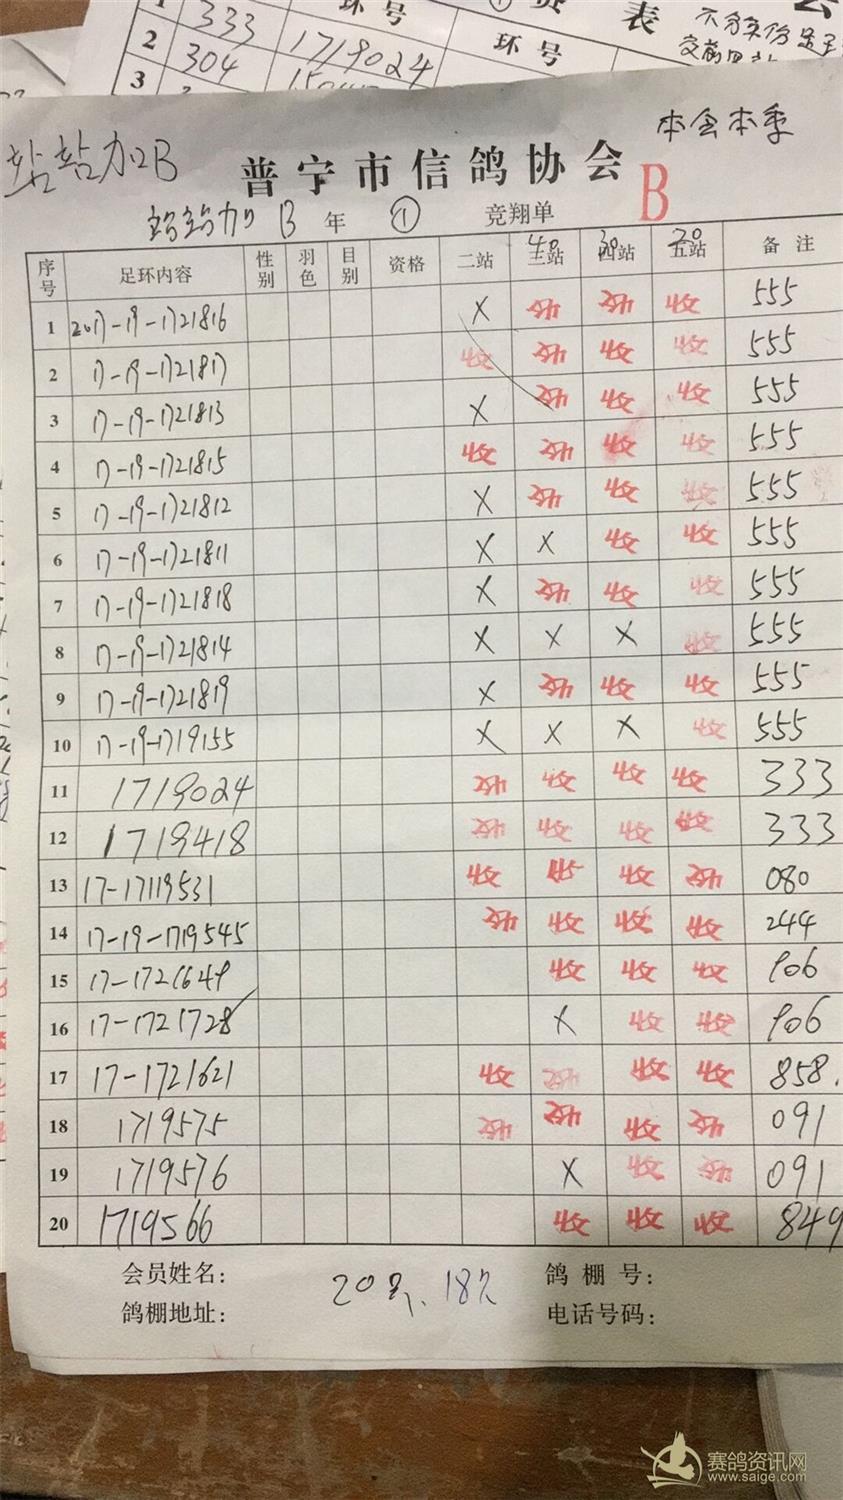 1 333 1719024
环号
2 304
3
环号
表
会
本会本季
站站加B
普宁市信鸽协会
B
站站加B 年 ① 竞翔单
40 30 20
序号 足环内容 性别 羽色 目别 资格 二站 三站 四站 五站 备注
1 2017-19-1721816 X 收 收 收 555
2 17-19-1721817 收 收 收 收 555
3 17-19-1721813 X 收 收 收 555
4 17-19-1721815 收 收 收 收 555
5 17-19-1721812 X 收 收 收 555
6 17-19-1721811 X X 收 收 555
7 17-19-1721818 X 收 收 收 555
8 17-19-1721814 X X X 收 555
9 17-19-1721819 X 收 收 收 555
10 17-19-1719155 X X X 收 555
11 1719024 收 收 收 收 333
12 1719418 收 收 收 收 333
13 17-17119531 收 收 收 收 080
14 17-19-1719545 收 收 收 收 244
15 17-1721649 收 收 收 906
16 17-1721728 X 收 收 906
17 17-1721621 收 收 收 收 858.
18 1719575 收 收 收 收 091
19 1719576 X 收 收 091
20 1719566 收 收 收 849
会员姓名: 鸽棚号:
鸽棚地址: 电话号码:
赛鸽资讯网
www.saige.com